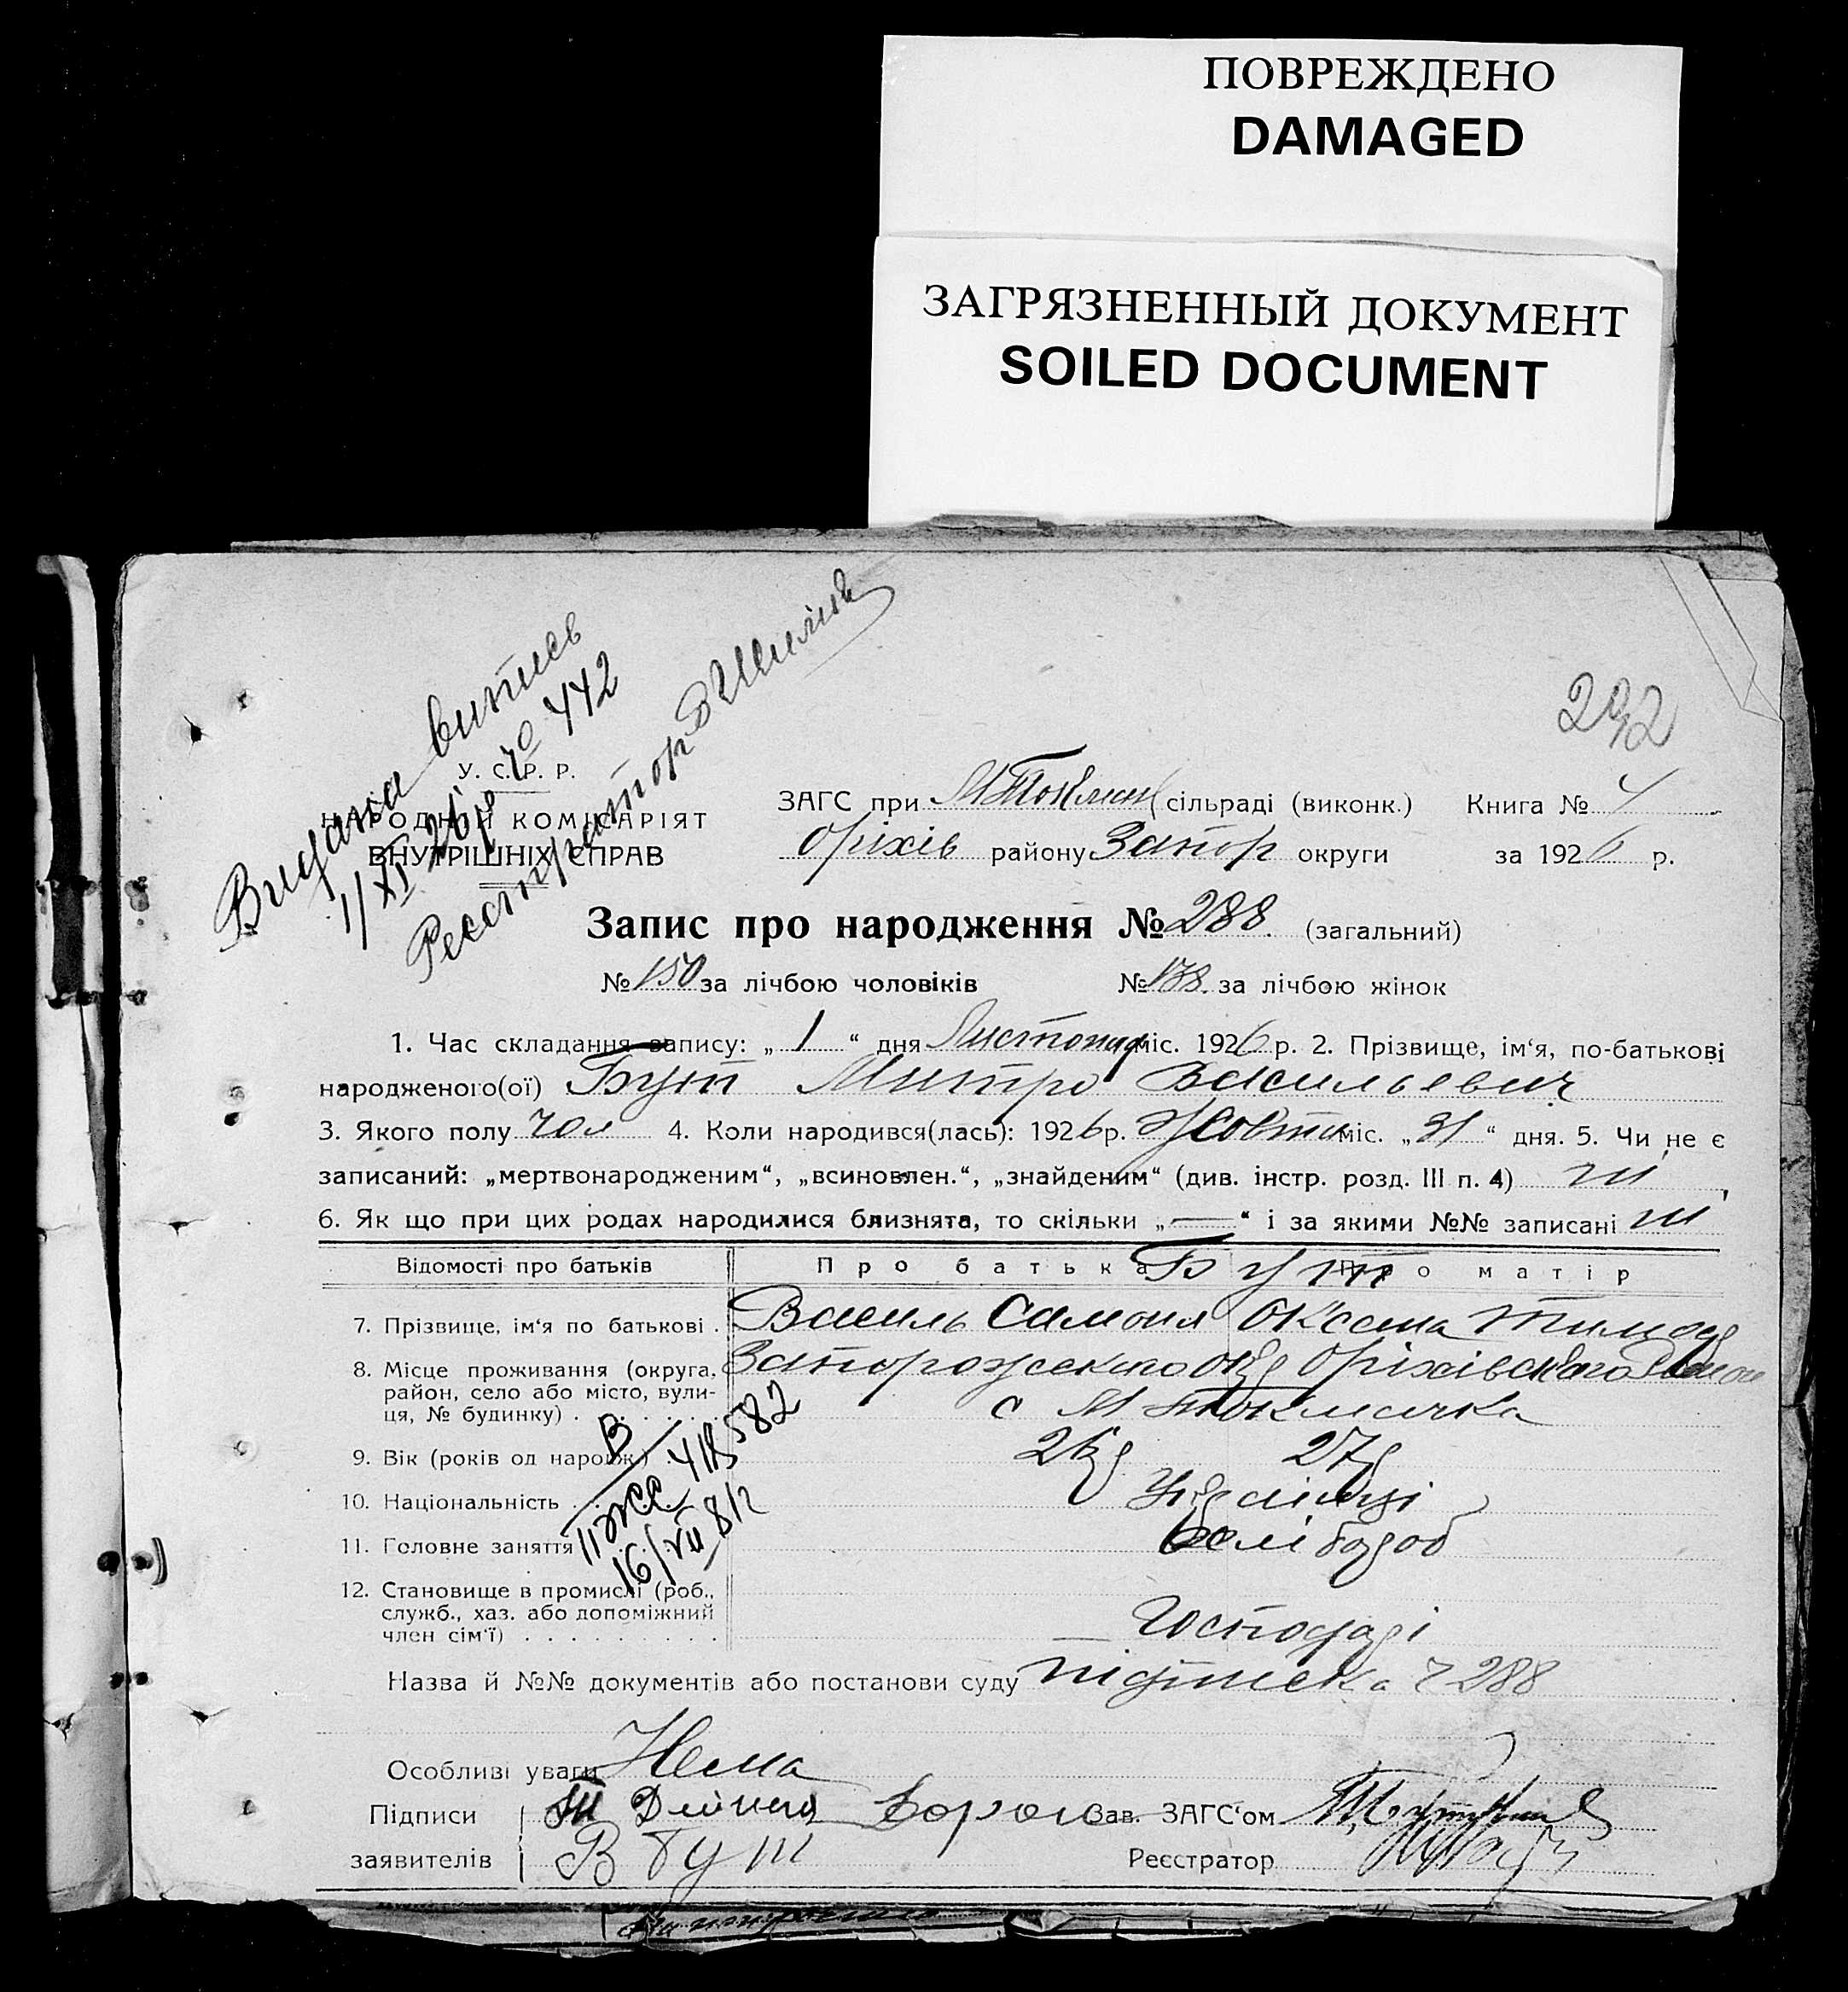 ПОВРЕЖДЕНО
DAMAGED
ЗАГРЯЗНЕННЫЙ ДОКУМЕНТ
SOILED DOCUMENT
292
Видана випись
1/XI 26 р № 442
Реєстратор
У. С. Р. Р.
НАРОДНІЙ КОМІСАРІЯТ
ВНУТРІШНІХ СПРАВ
ЗАГС при М Токмац сільраді (виконк.) Книга № 4
Оріхів району Запор округи за 1926 р.
Запис про народження № 288. (загальний)
№ 150 за лічбою чоловіків № 138. за лічбою жінок
1. Час складання запису: „ 1 “ дня Листопад міс. 1926 р. 2. Прізвище, ім‘я, по-батькові
народженого(ої) Бут Митро Васильевич
3. Якого полу чол 4. Коли народився(лась): 1926 р. Жовтн міс. „ 31 “ дня. 5. Чи не є
записаний: „мертвонародженим“, „всиновлен.“, „знайденим“ (див. інстр. розд. III п. 4) ні
6. Як що при цих родах народилися близнята, то скільки „ — “ і за якими №№ записані ні
Відомості про батьків Про батька Про матір
Бут
7. Прізвище, ім‘я по батькові . Василь Самойл Оксана Тимоф
8. Місце проживання (округа, Запорожського окр Оріхівского Район
район, село або місто, вули-
ця, № будинку) . . . . . . . . с М Токмачка
9. Вік (років од народж.) . . 26р 27р
10. Національність . . . Українці
11. Головне заняття . . . хлібороб
12. Становище в промислі (роб.,
служб., хаз. або допоміжний
член сім‘ї) . . . . . . . . . Господарі
В
II ЖС 418582
16/VII 81г
Назва й №№ документів або постанови суду підписка ч 288
Особливі уваги Нема
Підписи Дейнега Зав. ЗАГС‘ом
заявителів В Бут Реєстратор